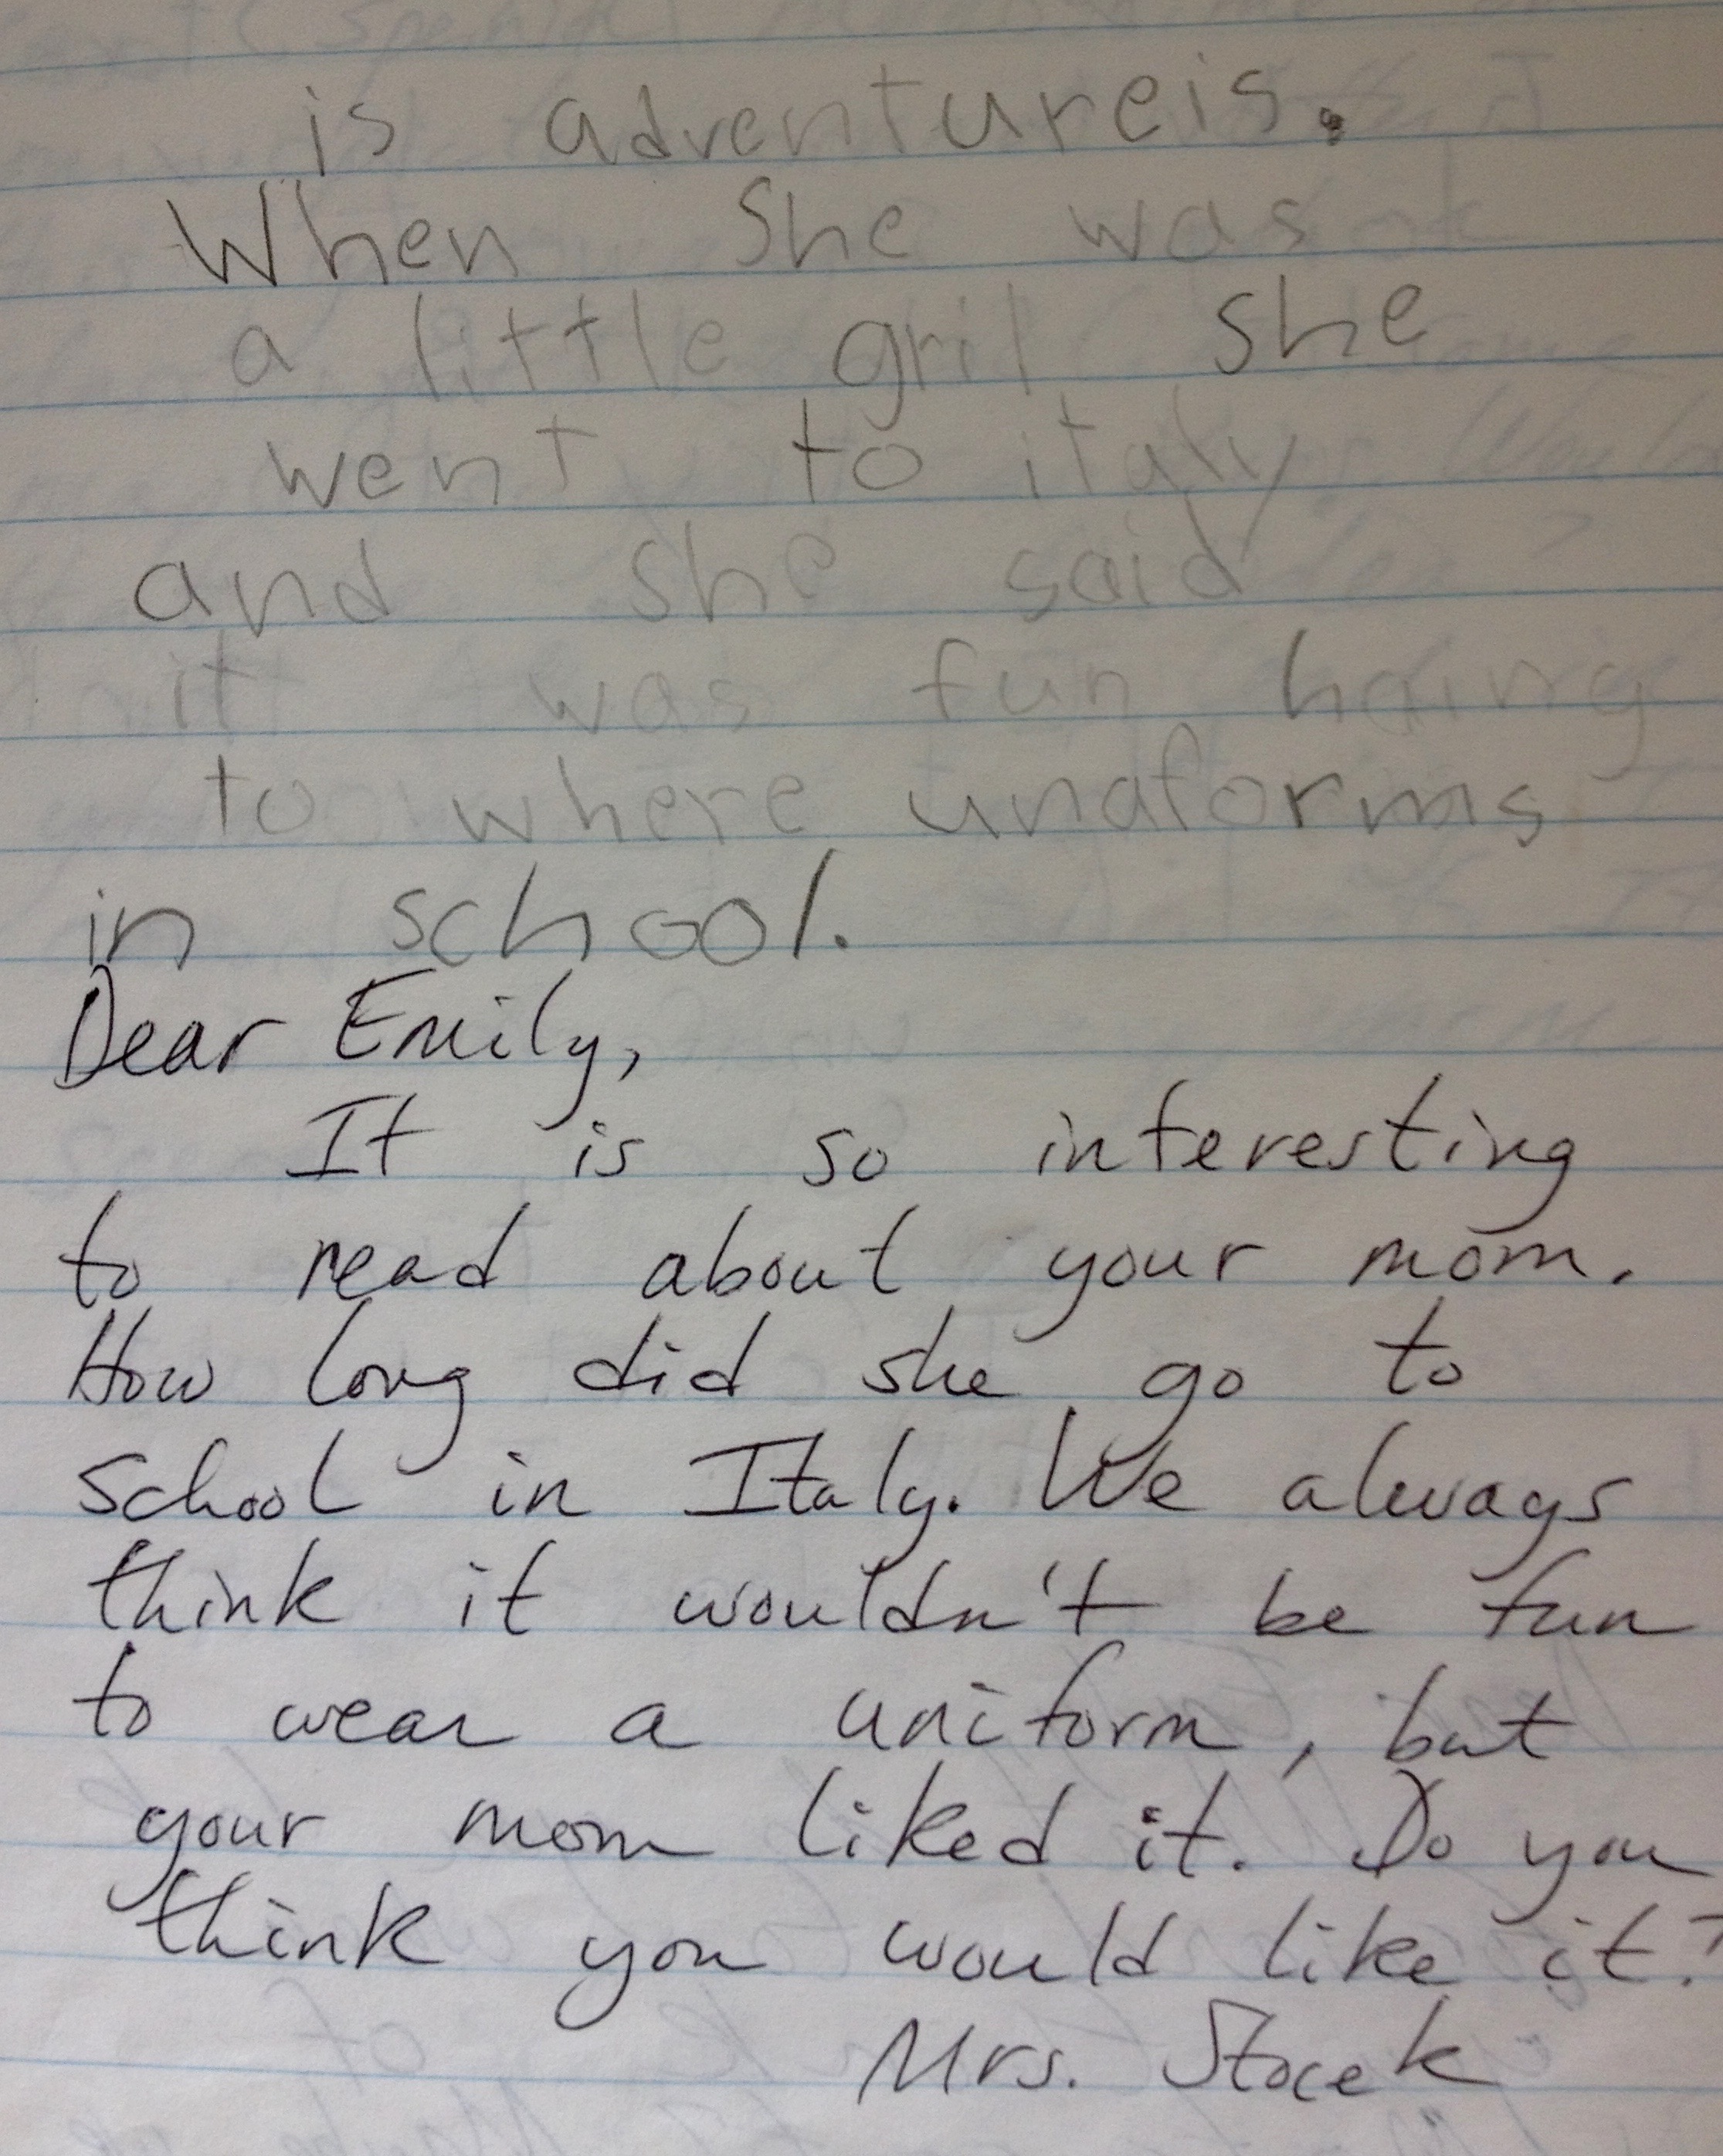 is adventureis.
When she was
a little gril she
went to italy
and she said
it was fun haing
to where unaforms
in school.
Dear Emily,
It is so interesting
to read about your mom.
How long did she go to
school in Italy. We always
think it wouldn't be fun
to wear a uniform, but
your mom liked it. Do you
think you would like it?
Mrs. Stocek